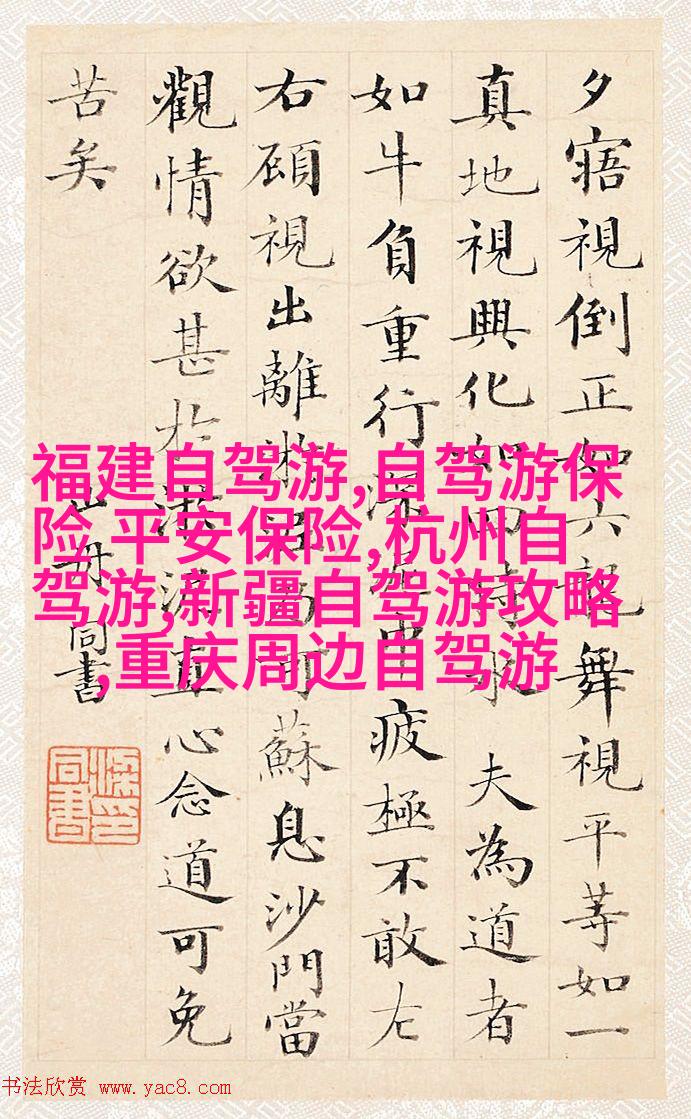 夕寤視倒正如六龍舞視平等如一
真地視興化如四時木 夫為道者
如牛負重行深泥中疲極不敢左
右顧視出離淤泥乃可蘇息沙門當
觀情欲甚於淤泥直心念道可免
苦矣
山舟同書
福建自驾游,自驾游保
险,平安保险,杭州自
驾游,新疆自驾游攻略
,重庆周边自驾游
书法欣赏 www.yac8.com